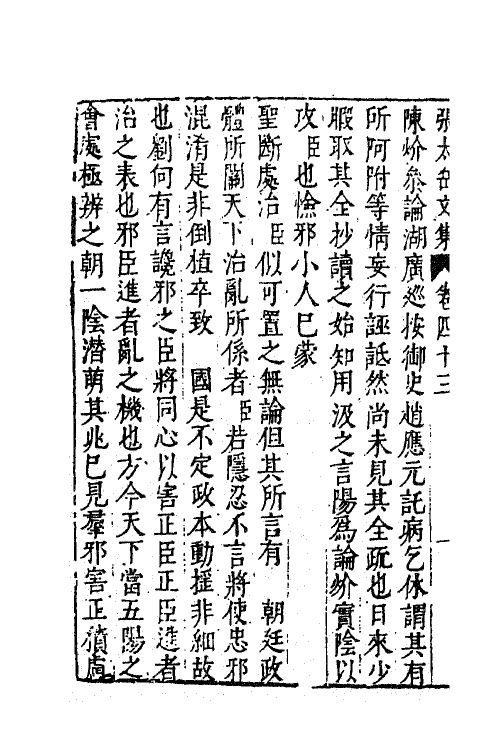 張太岳文集 卷四十三 一
陳炌叅論湖廣廵按御史趙應元託病乞休謂其有
所阿附等情妄行誣詆然尚未見其全疏也日來少
暇取其全抄讀之始知用汲之言陽爲論炌實陰以
攻臣也憸邪小人已蒙
聖斷處治臣似可置之無論但其所言有 朝廷政
體所關天下治亂所係者臣若隱忍不言將使忠邪
混淆是非倒植卒致 國是不定政本動揺非細故
也劉何有言讒邪之臣將同心以害正臣正臣進者
治之表也邪臣進者亂之機也方今天下當五陽之
會處極辨之朝一陰潛萌其兆已見羣邪害正積慮